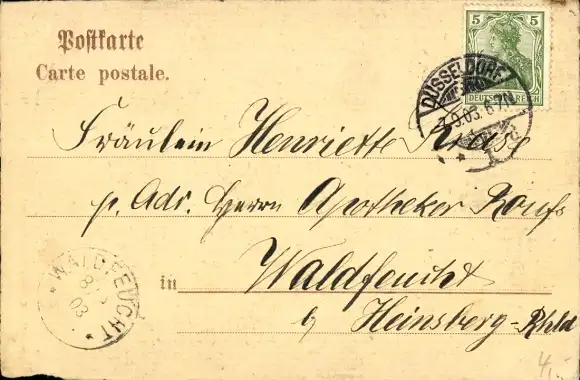 Postkarte
Carte postale.
5 5
DEUTSCHES REICH
DÜSSELDORF
7.9.03. 6-7N
1
Fräulein Henriette
p. Adr. Herrn Apotheker
in Waldfeucht
b/ Heinsberg-Rhld
WALDFEUCHT
8
03
4,-